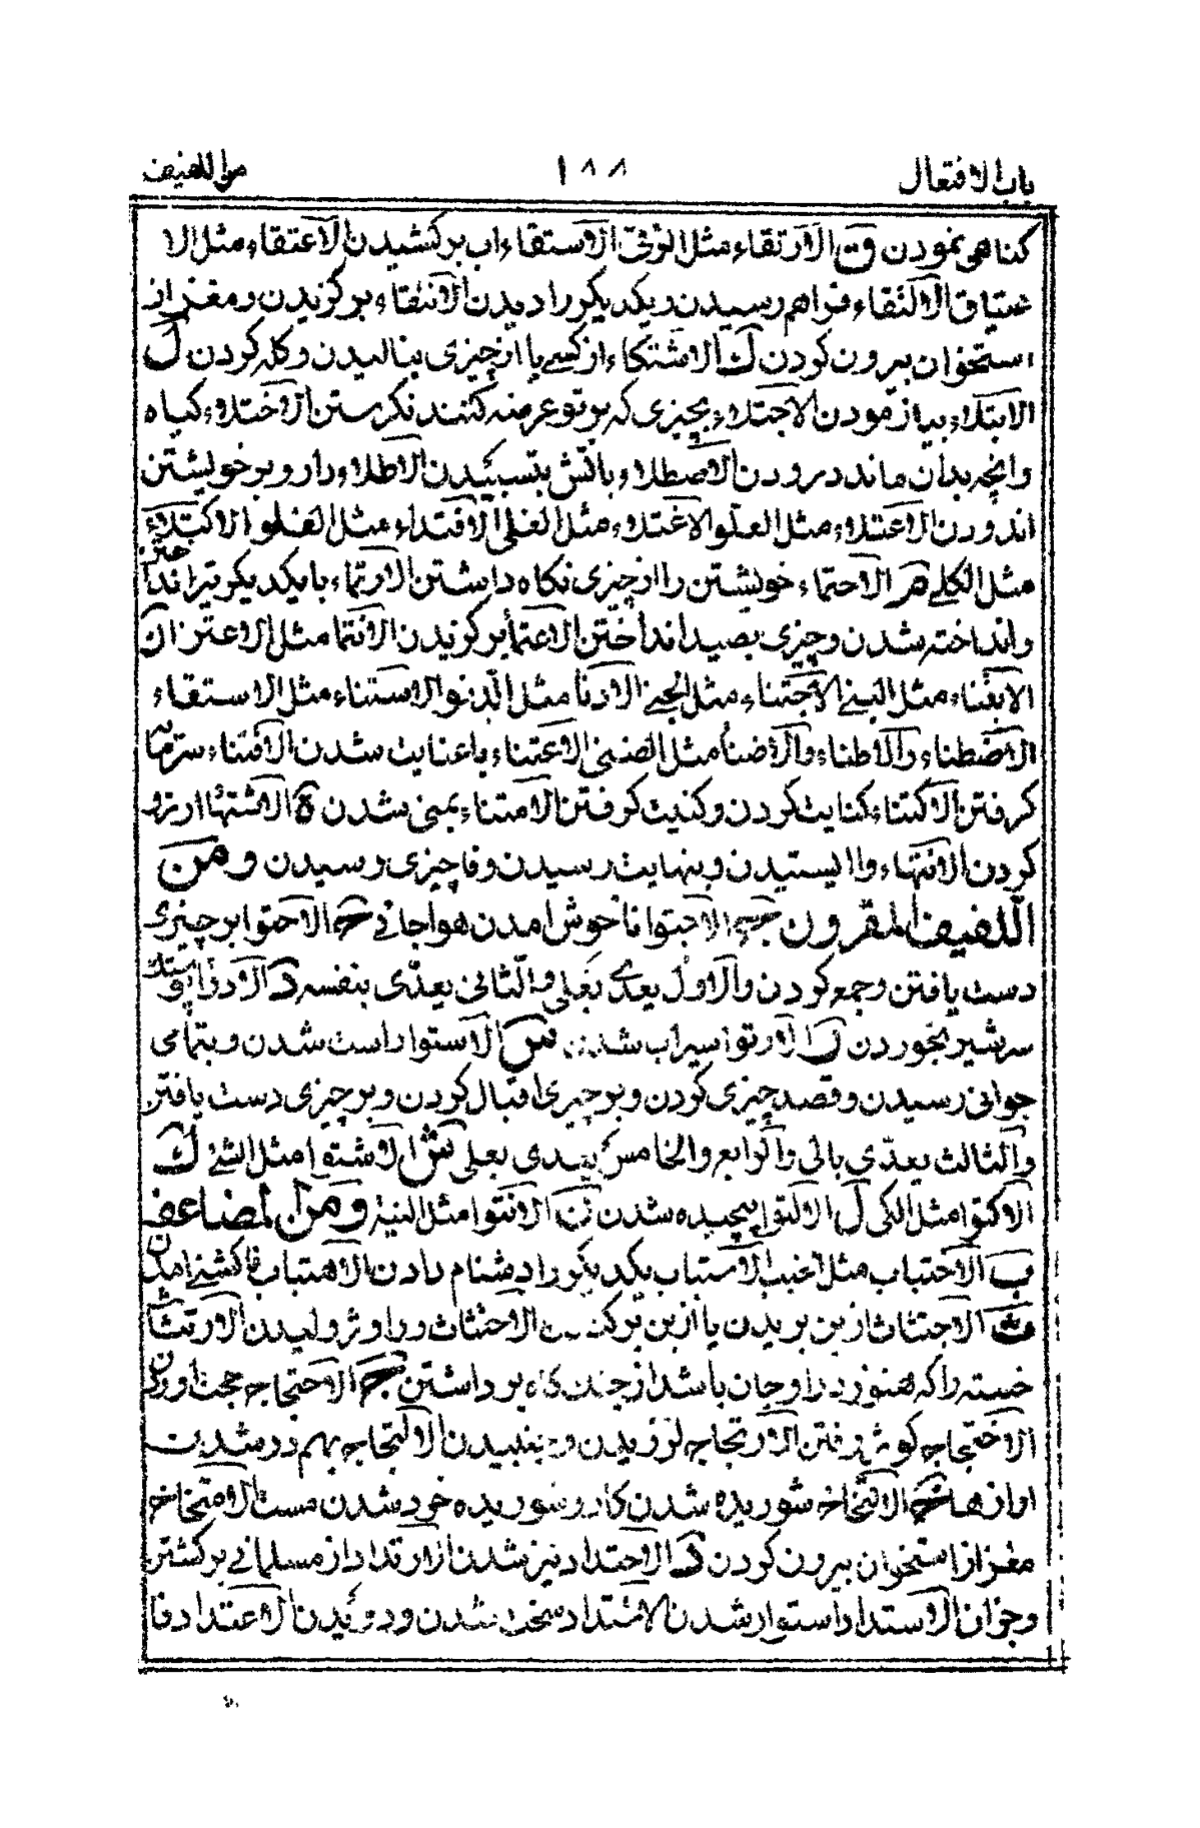 باب الافتعال
١٨٨
من اللفيف
كناهى نمودن ق الارتقاء مثل الرقى الاستقاء اب بركشيدن الاعتقاء مثل الا
عتياق الالتقاء فراهم رسيدن ويكديكر را ديدن الانتقاء بركزيدن ومغز از
استخوان بيرون كردن ك الاشتكاء از كسے يا از چيزى بناليدن وكله كردن ل
الابتلاء بيازمودن الاجتلاء بچيزى كه بر تو عرضه كنند نكرستن الاختلاء كياه
وانچه بدان ماند درودن الاصطلاء باتش بتسبيدن الاطلاء دارو بر خويشتن
اندودن الاعتلاء مثل العلو الاغتلاء مثل الغلى الافتلاء مثل الفلو الاكتلاء
مثل الكلے م الاحتماء خويشتن را از چيزى نكاه داشتن الارتماء بايكديكر تير انداختن
وانداخته شدن وچيزى بصيد انداختن الاعتما بركزيدن الانتما مثل الاعتزا ن
الابتناء مثل البنے الاجتناء مثل الجنے الادنا مثل الدنو الاستناء مثل الاستقاء
الاضطناء والاطناء والاضنا مثل الضنى الاعتناء باعنايت شدن الاقتناء سرمايه
كرفتن الاكتناء كنايت كردن وكنيت كرفتن الامتناء بمنى شدن ه الاشتها ارزو
كردن الانتهاء وا ايستيدن وبنهايت رسيدن وفا چيزى رسيدن ومن
اللفيف المقرون ج الاجتوا ناخوش امدن هوا جائے ح الاحتوا بر چيزى
دست يافتن وجمع كردن والاول يعدى بعلى والثانى يعدى بنفسه د الادوا پوستك
سر شير بخوردن ر الارتوا سيراب شدن س الاستوا راست شدن وبتمامى
جوانى رسيدن وقصد چيزى كردن وبر چيزى اقبال كردن وبر چيزى دست يافتن
والثالث يعدى بالى والرابع والخامس يعدى بعلى ش الاشتوا مثل الشے ك
الاكتوا مثل الكى ل الالتوا پيچيده شدن ن الانتوا مثل النية ومن المضاعف
ب الاحتباب مثل الحب الاستباب يكديكر را دشنام دادن الاهتباب فا كشنے امدن
ث الاجتثاث از بن بريدن يا از بن بركندن الاحتثاث ورا وژوليدن الارتثاث
خسته را كه هنوز درو جان باشد از جنك كاه برداشتن ج الاحتجاج حجت اوردن
الاختجاج كوژ رفتن الارتجاج لرزيدن وجنبيدن الالتجاج بهم در شدن
اوازها خ الالتخاخ شوريده شدن كار وشوريده خرد شدن مست الامتخاخ
مغز از استخوان بيرون كردن د الاحتداد تيز شدن الارتداد از مسلمانے بركشتن
وجزان الاستداد استوار شدن الاشتداد سخت شدن ودويدن الاعتداد فا